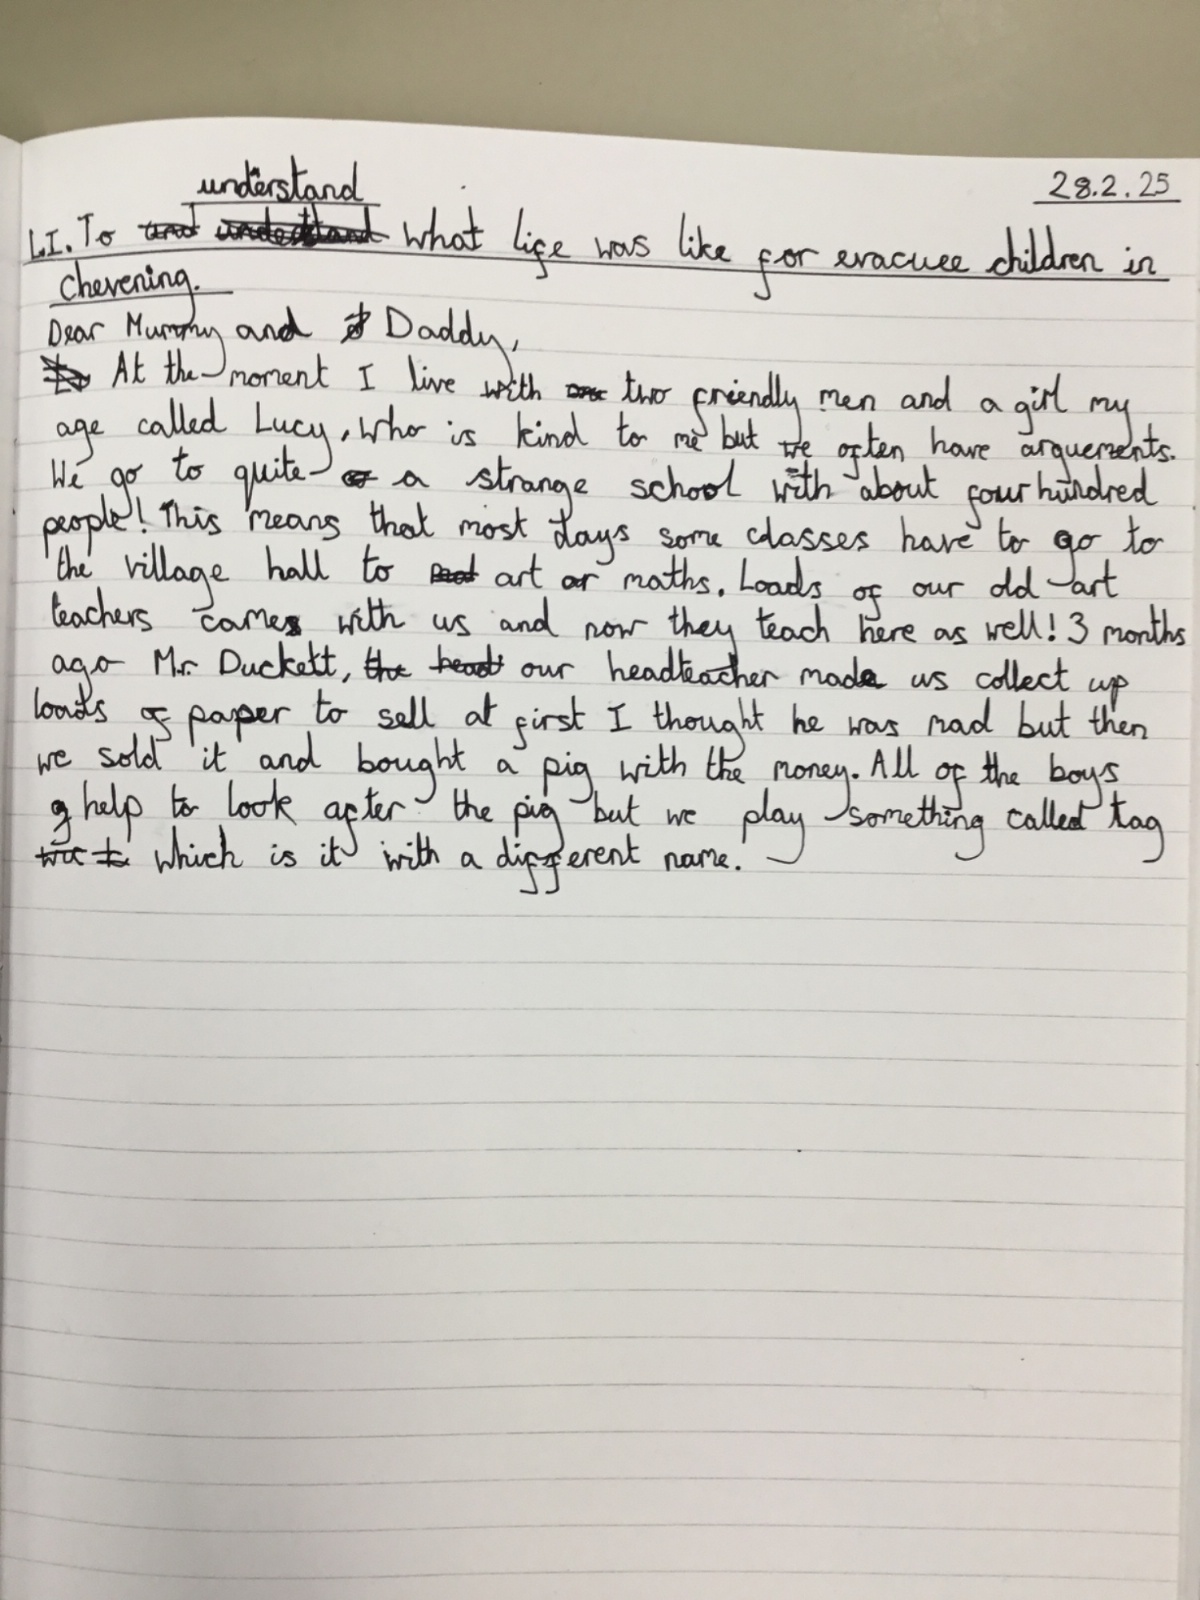 28.2.25
understand
L.I. To what life was like for evacuee children in
chevening.
Dear Mummy and Daddy,
At the moment I live with two friendly men and a girl my
age called Lucy, who is kind to me but we often have arguements.
We go to quite a strange school with about four hundred
people! This means that most days some classes have to go to
the village hall to art or maths. Loads of our old art
teachers came with us and now they teach here as well! 3 months
ago Mr. Duckett, our headteacher made us collect up
loads of paper to sell at first I thought he was mad but then
we sold it and bought a pig with the money. All of the boys
help to look after the pig but we play something called tag
which is it with a different name.